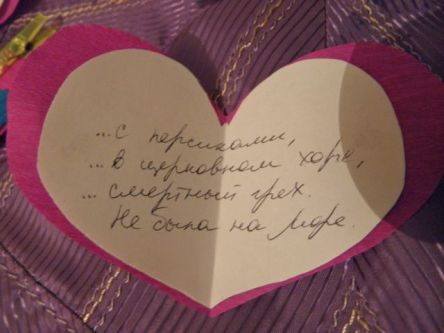 ...с персиками,
...в церковном хоре,
...смертный грех.
Не была на море.